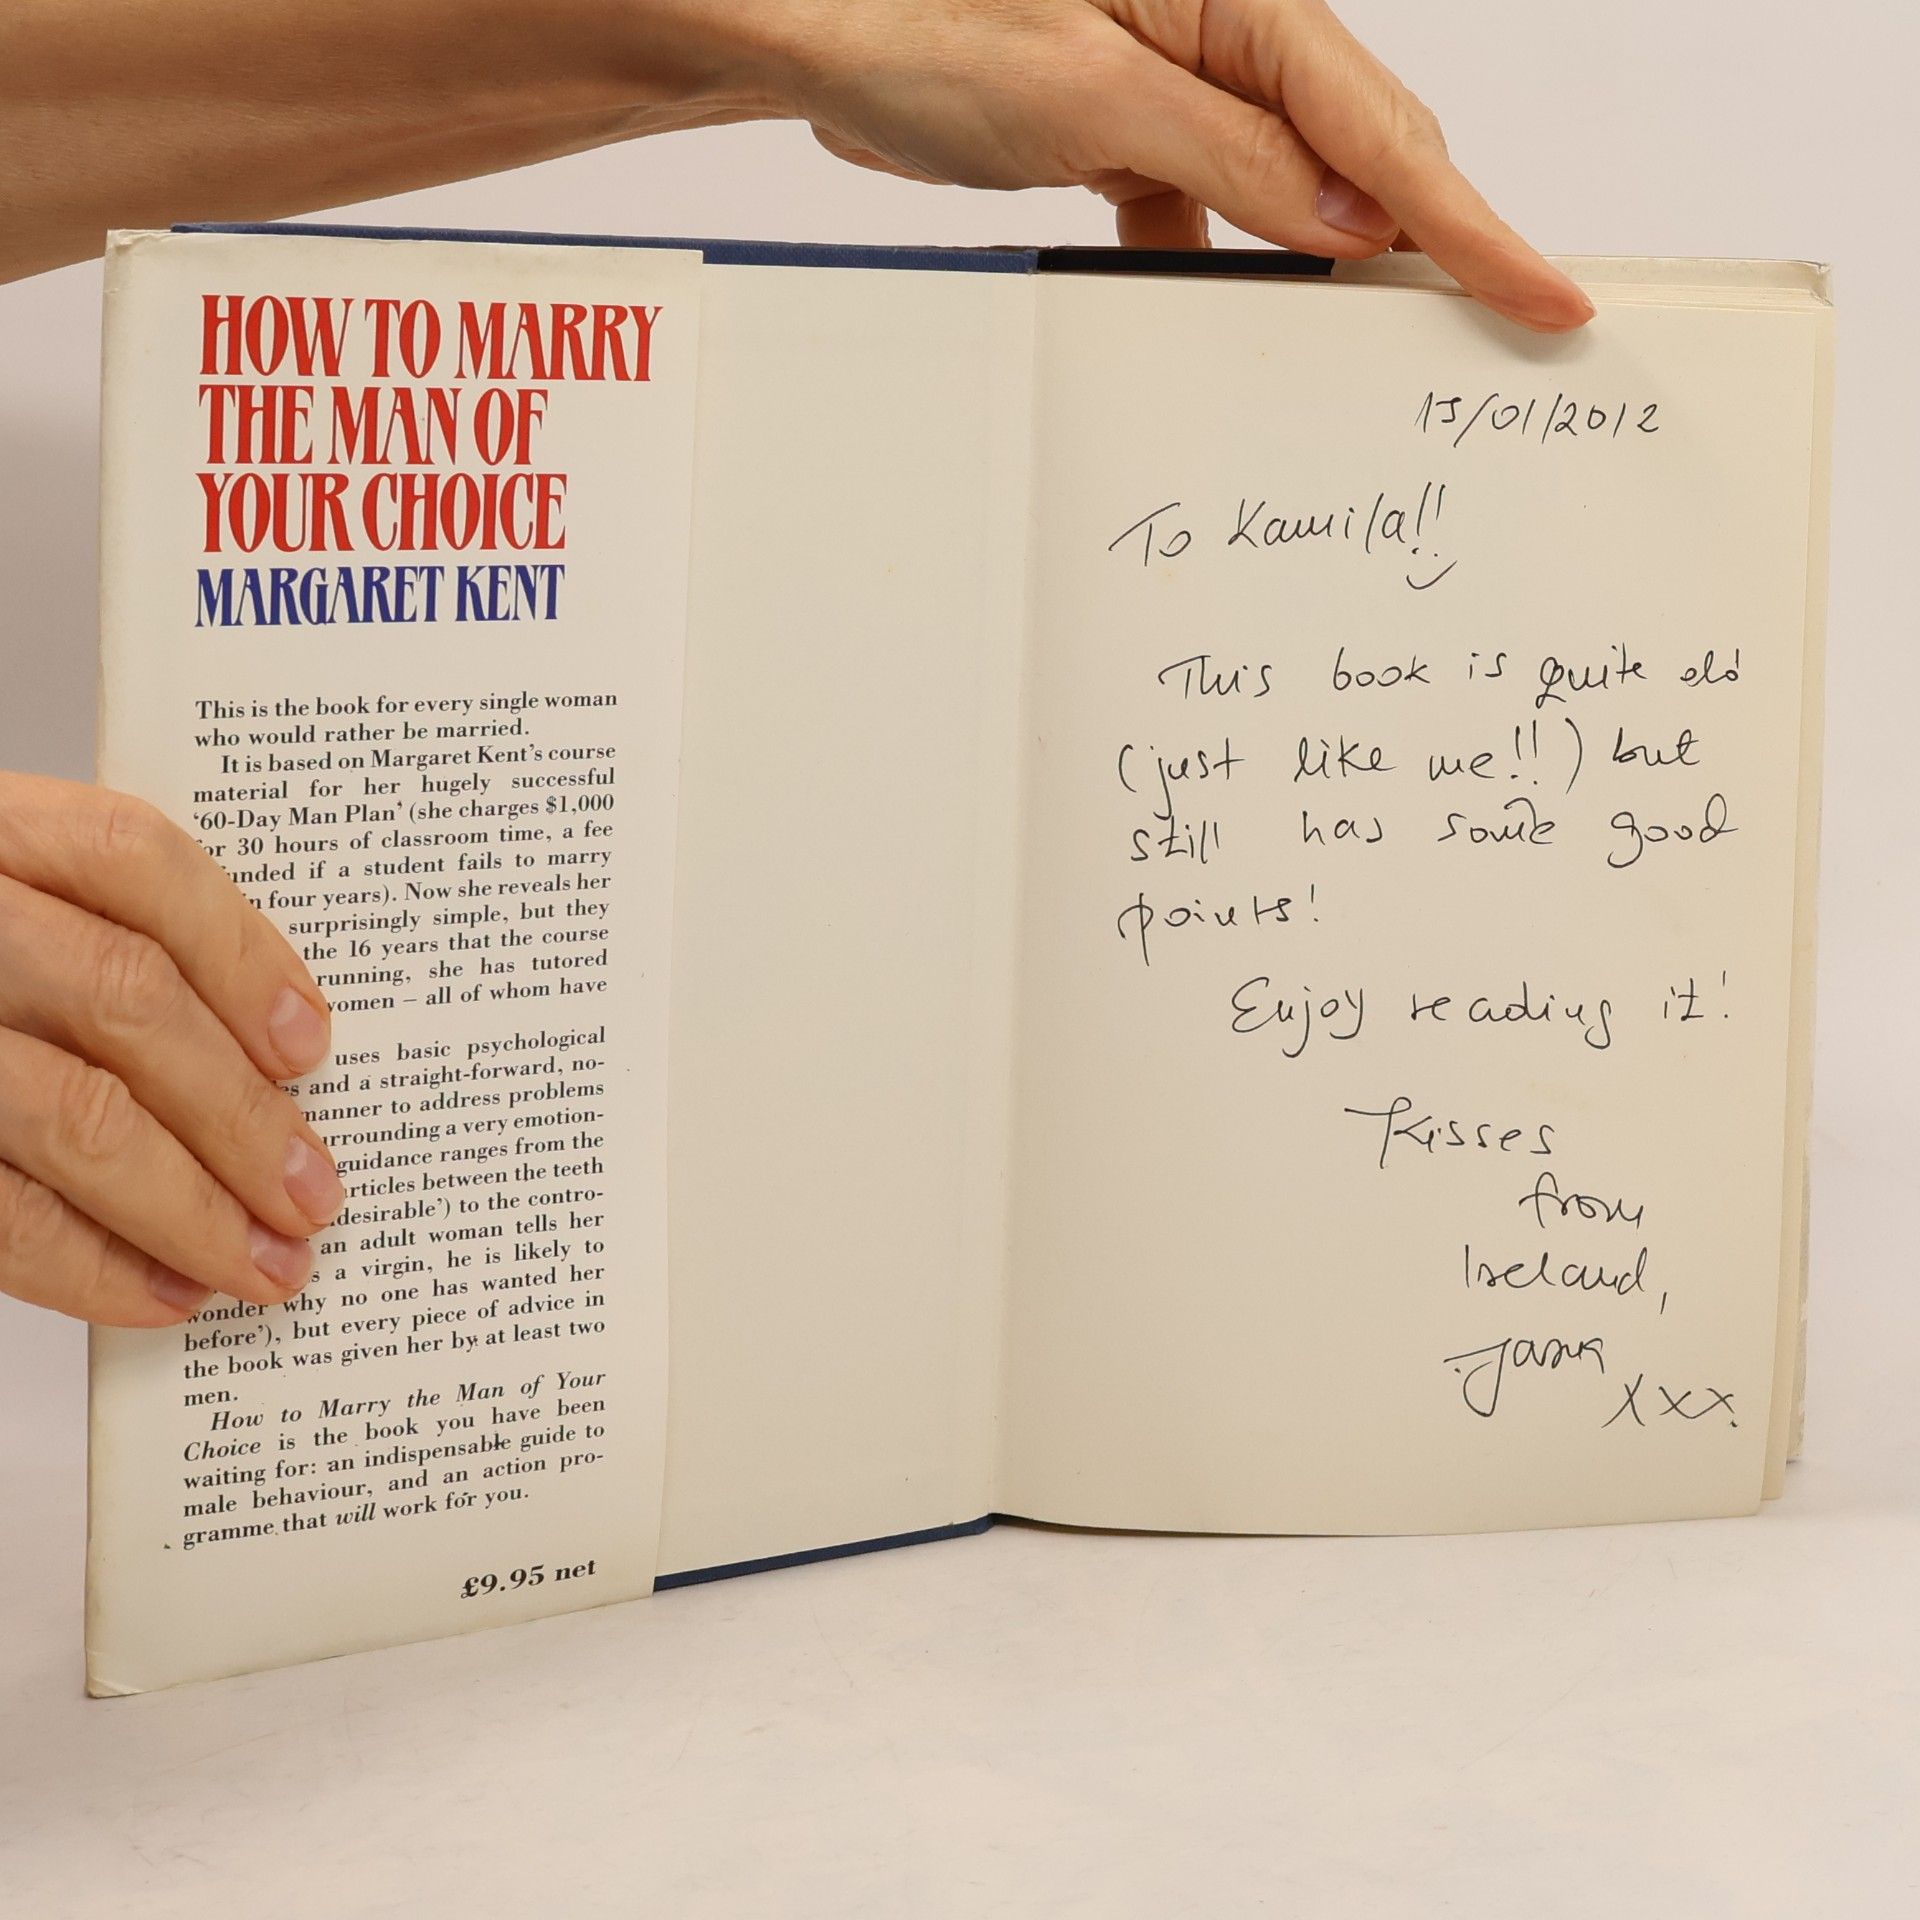 HOW TO MARRY
THE MAN OF
YOUR CHOICE
MARGARET KENT
This is the book for every single woman
who would rather be married.
It is based on Margaret Kent's course
material for her hugely successful
‘60-Day Man Plan’ (she charges $1,000
for 30 hours of classroom time, a fee
unded if a student fails to marry
n four years). Now she reveals her
surprisingly simple, but they
the 16 years that the course
running, she has tutored
women – all of whom have
uses basic psychological
es and a straight-forward, no-
manner to address problems
urrounding a very emotion-
guidance ranges from the
articles between the teeth
desirable’) to the contro-
an adult woman tells her
s a virgin, he is likely to
wonder why no one has wanted her
before’), but every piece of advice in
the book was given her by at least two
men.
How to Marry the Man of Your
Choice is the book you have been
waiting for: an indispensable guide to
male behaviour, and an action pro-
gramme that will work for you.
£9.95 net
15/01/2012
To Kamila!!
This book is quite old
(just like me!!) but
still has some good
points!
Enjoy reading it!
Kisses
from
Ireland,
xxx.